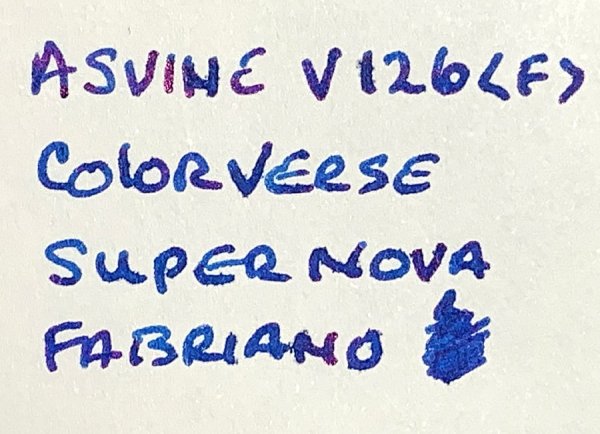 ASVINE V126(F)
COLORVERSE
SUPERNOVA
FABRIANO